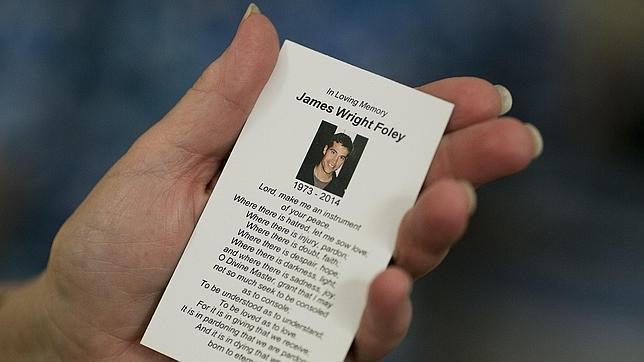 In Loving Memory
James Wright Foley
1973 - 2014
Lord, make me an instrument
of your peace
Where there is hatred, let me sow love;
Where there is injury, pardon;
Where there is doubt, faith;
Where there is despair, hope;
Where there is darkness, light,
and where there is sadness, joy.
O Divine Master, grant that I may
not so much seek to be consoled
as to console;
To be understood as to understand;
To be loved as to love.
For it is in giving that we receive;
It is in pardoning that we are pardon
And it is in dying that we
born to etern